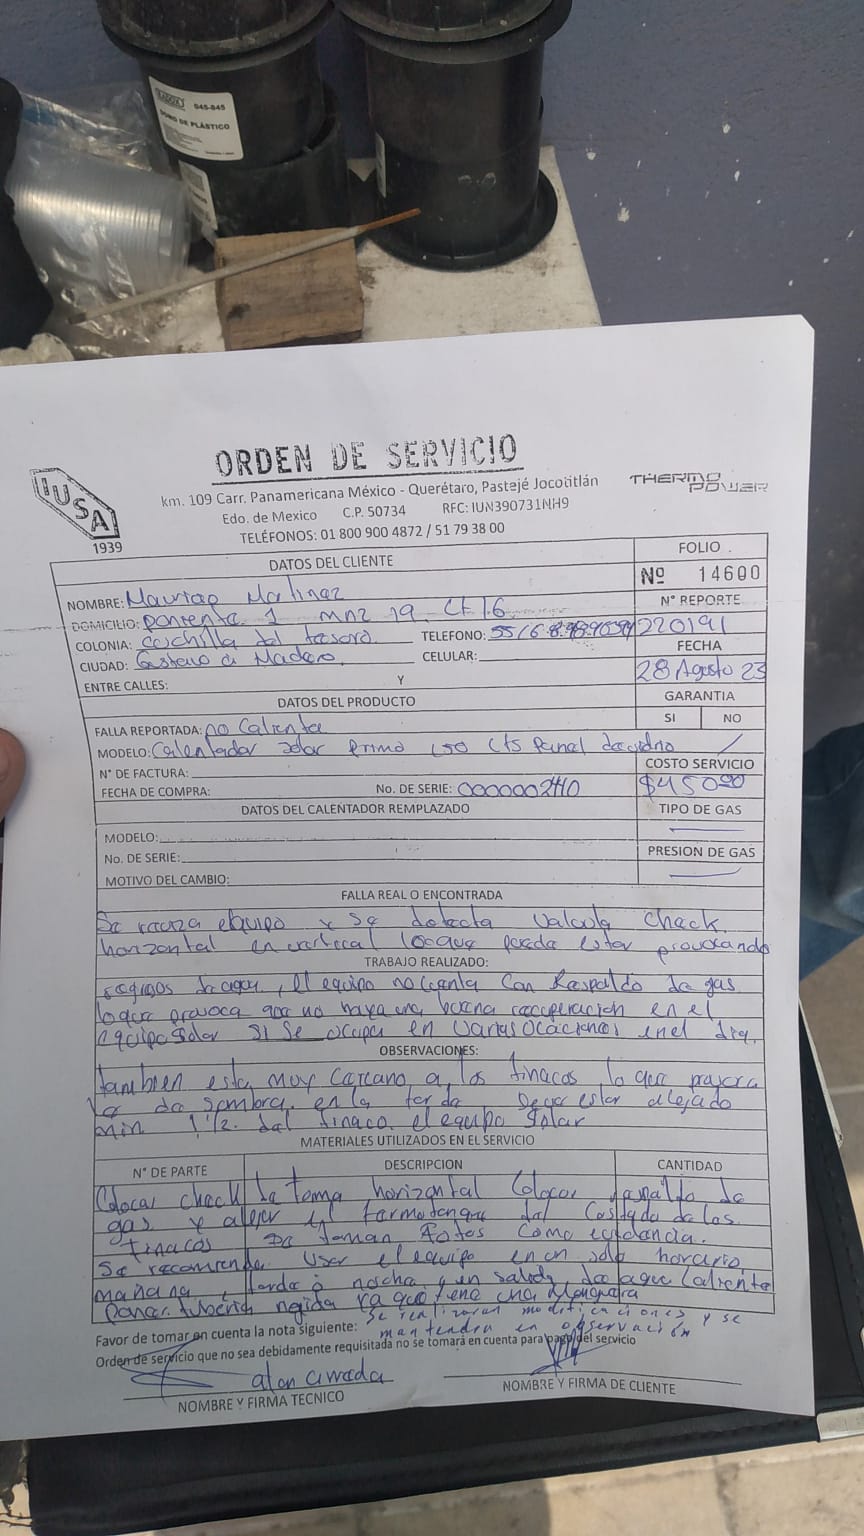 045-845
DOMO DE PLÁSTICO
ORDEN DE SERVICIO
IUSA
1939
THERMO
POWER
km. 109 Carr. Panamericana México - Querétaro, Pastejé Jocotitlán
Edo. de Mexico C.P. 50734 RFC: IUN390731NH9
TELÉFONOS: 01 800 900 4872 / 51 79 38 00
DATOS DEL CLIENTE
FOLIO
Nº 14600
NOMBRE: Martinez
Nº REPORTE
DOMICILIO: poniente 1 mnz 19. Lt 16
COLONIA: cuchilla del tesoro TELEFONO: 220191
FECHA
CIUDAD: Gustavo a Madero. CELULAR:
28 Agosto 23
ENTRE CALLES: Y
DATOS DEL PRODUCTO
GARANTIA
SI NO
FALLA REPORTADA: no Calienta
MODELO: Calentador solar Primo 150 Lts Panel de vidrio /
COSTO SERVICIO
N° DE FACTURA:
$450.00
FECHA DE COMPRA: No. DE SERIE:
DATOS DEL CALENTADOR REMPLAZADO
TIPO DE GAS
MODELO:
No. DE SERIE:
PRESION DE GAS
MOTIVO DEL CAMBIO:
FALLA REAL O ENCONTRADA
Se equipo y se detecta Valvula check
horizontal en vertical lo que pueda estar provocando
TRABAJO REALIZADO:
de agua, El equipo no cuenta Con Respaldo de gas
lo que provoca que no haya una buena recuperacion en el
equipo Solar si se ocupa en varias ocaciones en el dia.
OBSERVACIONES:
tambien esta muy cercano a los tinacos lo que
de sombra en la tarde Deve estar alejado
min 1 1/2. del tinaco el equipo Solar
MATERIALES UTILIZADOS EN EL SERVICIO
N° DE PARTE DESCRIPCION CANTIDAD
Colocar check la toma horizontal Colocar respaldo de
gas y alejar el termotanque del Costado de los
Tinacos Se toman Fotos Como evidencia.
Se recomienda User el equipo en un solo horario
mañana, tarde ò noche y en salida de agua Caliente
Poner tuberia rigida ya que tiene una Manguera
Se realizaran modificaciones y se
Favor de tomar en cuenta la nota siguiente: mantendra en observación
Orden de servicio que no sea debidamente requisitada no se tomará en cuenta para pago del servicio
NOMBRE Y FIRMA TECNICO
NOMBRE Y FIRMA DE CLIENTE